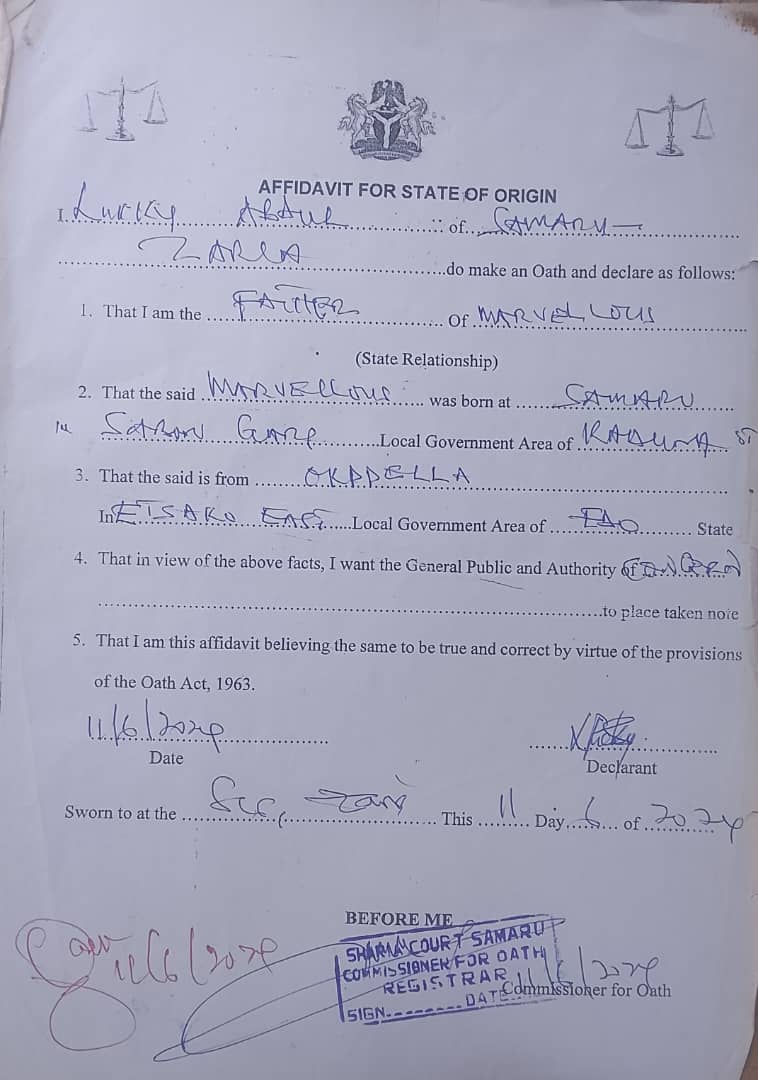 AFFIDAVIT FOR STATE OF ORIGIN
I. Lucky Abdul of SAMARU
ZARIA do make an Oath and declare as follows:
1. That I am the FATHER Of MARVELLOUS
(State Relationship)
2. That the said MARVELLOUS was born at SAMARU
In SABON GARI Local Government Area of KADUNA ST
3. That the said is from OKPPELLA
In ETSAKO EAST Local Government Area of EDO State
4. That in view of the above facts, I want the General Public and Authority of
to place taken note
5. That I am this affidavit believing the same to be true and correct by virtue of the provisions
of the Oath Act, 1963.
11/6/2024
Date
Declarant
Sworn to at the This 11 Day 6 of 2024
BEFORE ME
SHARIA COURT SAMARU
COMMISSIONER FOR OATH
REGISTRAR
SIGN DATE 11/6/2024
Commissioner for Oath
11/6/2024